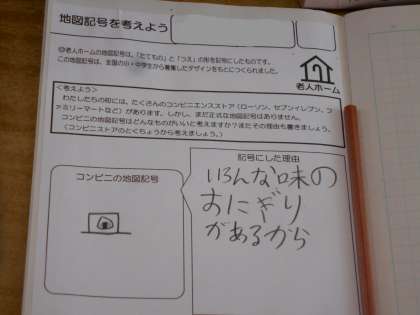 地図記号を考えよう
◎老人ホームの地図記号は、「たてもの」と「つえ」の形を記号にしたものです。
この地図記号は、全国の小・中学生から募集したデザインをもとにつくられました。
老人ホーム
<考えよう>
わたしたちの町には、たくさんのコンビニエンスストア(ローソン、セブンイレブン、フ
ァミリーマートなど)があります。しかし、まだ正式な地図記号はありません。
コンビニの地図記号はどんなものがいいと考えますか?またその理由も書きましょう。
(コンビニストアのとくちょうから考えましょう。)
コンビニの地図記号
記号にした理由
いろんな味の
おにぎり
があるから